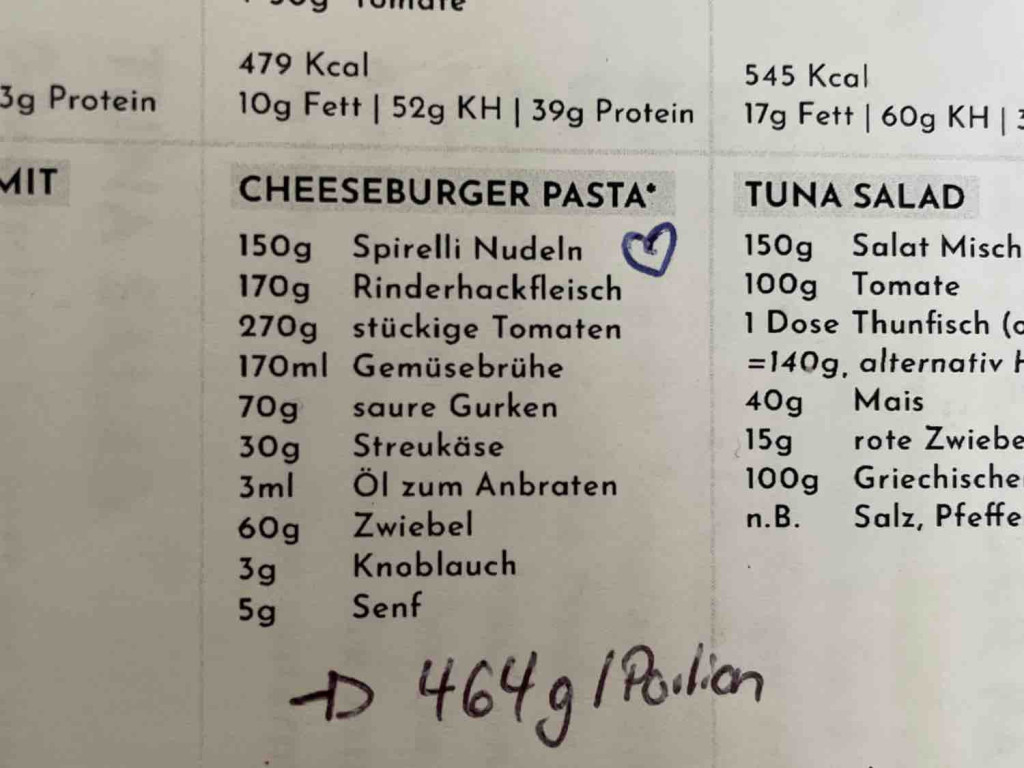 Tomate
3g Protein
479 Kcal
10g Fett | 52g KH | 39g Protein
545 Kcal
17g Fett | 60g KH |
MIT
CHEESEBURGER PASTA*
150g Spirelli Nudeln
170g Rinderhackfleisch
270g stückige Tomaten
170ml Gemüsebrühe
70g saure Gurken
30g Streukäse
3ml Öl zum Anbraten
60g Zwiebel
3g Knoblauch
5g Senf
→ 464g / Portion
TUNA SALAD
150g Salat Misch
100g Tomate
1 Dose Thunfisch (
=140g, alternativ
40g Mais
15g rote Zwiebe
100g Griechische
n.B. Salz, Pfeffe